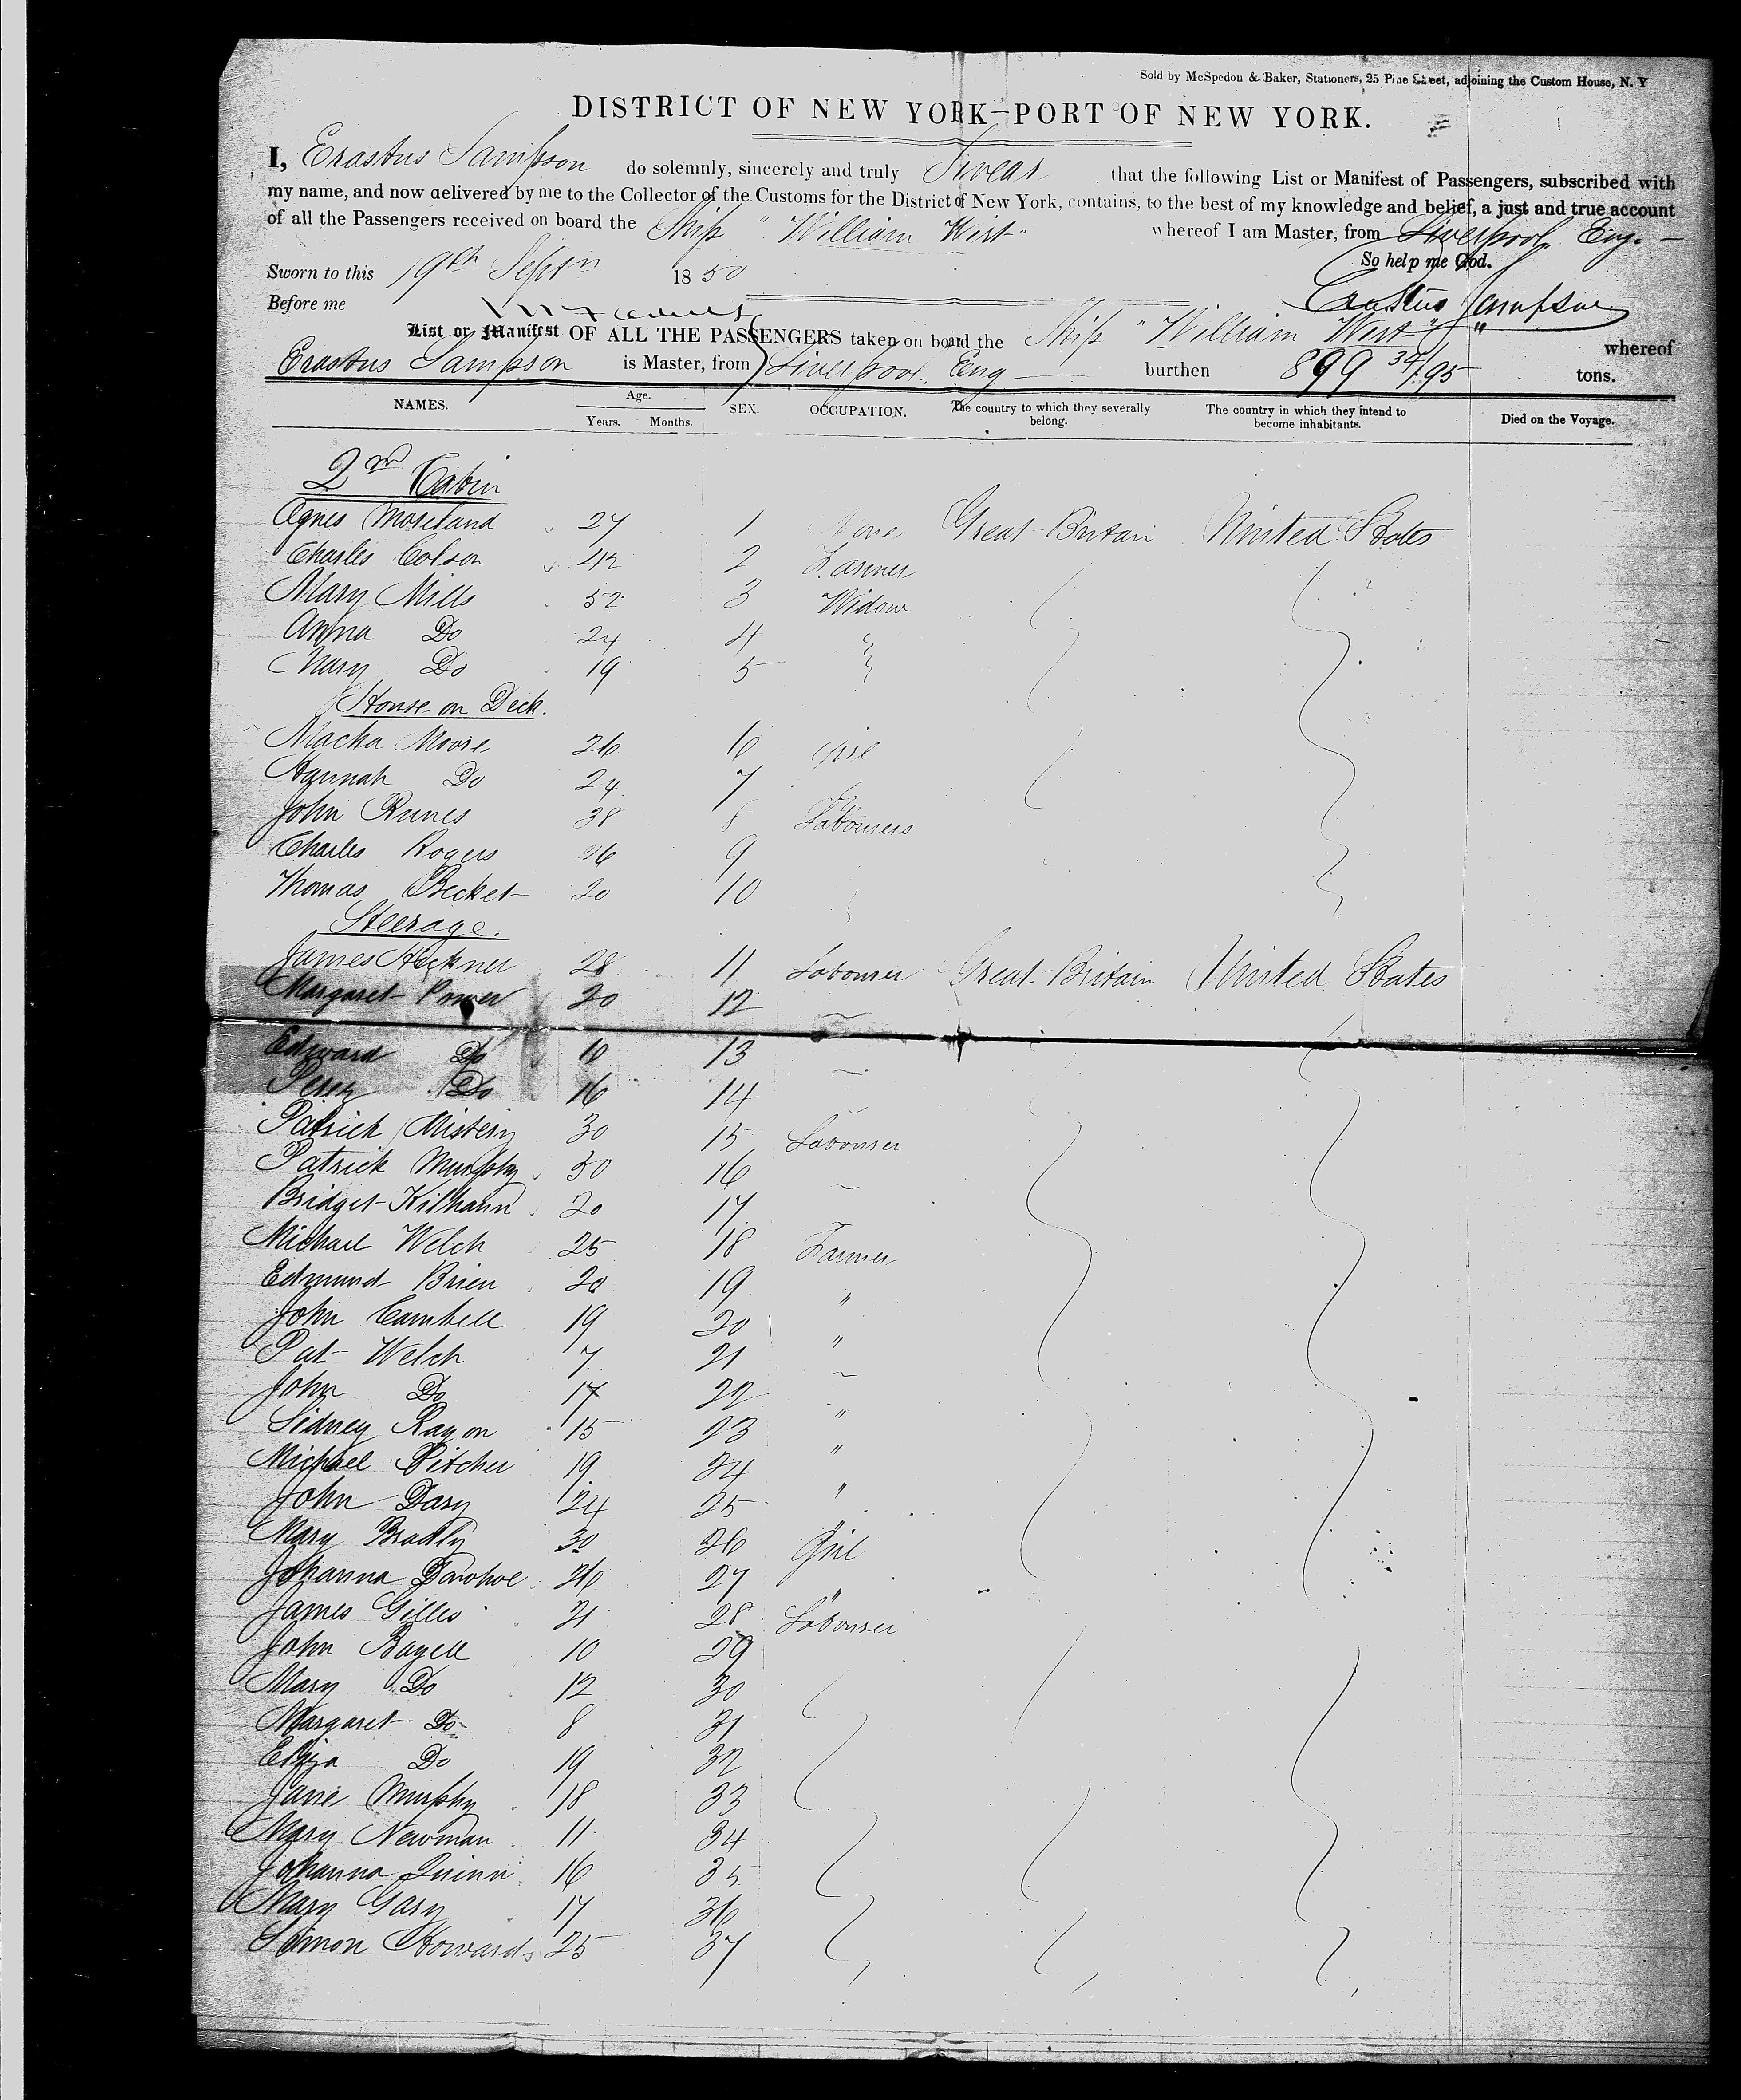 Sold by McSpedon & Baker, Stationers, 25 Pine Street, adjoining the Custom House, N. Y
DISTRICT OF NEW YORK—PORT OF NEW YORK.
I, Erastus Sampson do solemnly, sincerely and truly Swear that the following List or Manifest of Passengers, subscribed with
my name, and now delivered by me to the Collector of the Customs for the District of New York, contains, to the best of my knowledge and belief, a just and true account
of all the Passengers received on board the Ship "William West" whereof I am Master, from Liverpool Eng. —
Sworn to this 19th Septr 1850 So help me God.
Before me Erastus Sampson
List or Manifest OF ALL THE PASSENGERS taken on board the Ship "William West" whereof
Erastus Sampson is Master, from Liverpool Eng — burthen 899 34/95 tons.
NAMES. Age. Years. Months. SEX. OCCUPATION. The country to which they severally belong. The country in which they intend to become inhabitants. Died on the Voyage.
2nd Cabin
Agnes Moreland 27 1 None Great Britain United States
Charles Colson 42 2 Farmer
Mary Mills 52 3 Widow
Anna Do 24 4
Mary Do 19 5
House on Deck.
Moore 26 6
Hannah Do 24 7
John 38 8 Labourers
Charles Rogers 9
Thomas Becket 20 10
Steerage.
James 28 11 Labourer Great Britain United States
Margaret Power 20 12
Edward Do 13
Do 16 14
Patrick 30 15 Labourer
Patrick Murphy 30 16
Bridget 20 17
Michael Welch 25 18 Farmer
Edmund Brien 20 19 "
John Cambell 19 20 "
Pat Welch 7 21
John Do 17 22 "
Sidney 15 23 "
Michael Pitcher 19 24 "
John 24 25 "
Mary Bradly 30 26 Girl
Johanna 26 27 "
James Gilles 21 28 Labourer
John 10 29
Mary Do 12 30
Margaret Do 8 31
Eliza Do 19 32
Jane Murphy 18 33
Mary Newman 11 34
Johanna Quinn 16 35
Mary Gary 17 36
Simon Howard 25 37